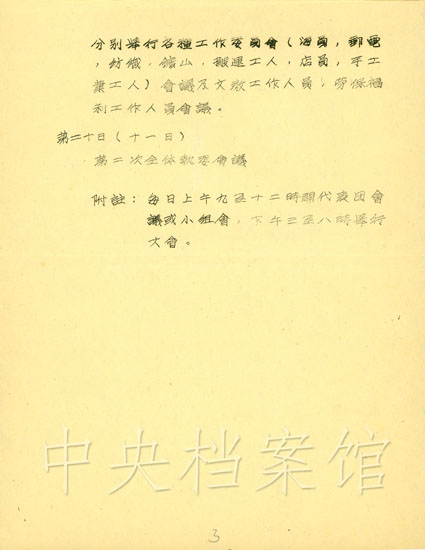 分別舉行各種工作委員會（海員，郵電
，紡織，鑛山，搬運工人，店員，手工
業工人）會議及文教工作人員，勞保福
利工作人員會議。
第二十日（十一日）
第二次全体執委會議
附註：每日上午九至十二時開代表团會
議或小組會，下午三至八時舉行
大會。
中央档案馆
3